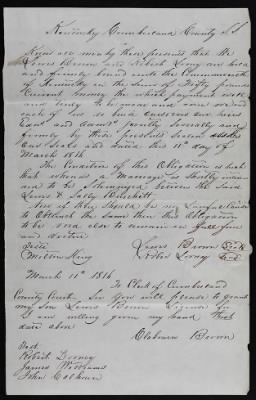 Kentucky Cumberland County SS
Know all men by these presents that We
Lewis Brown and Robert Long are held
and firmly bound unto the Commonwealth
of Kentucky in the sum of Fifty pounds
Current money the which payment well
and truly to be made and
each of us our Heirs
Jointly Severally and
firmly by these presents Sealed
Our Seals and Dated this 11th day of
March 1816
The Condition of this Obligation is such
that whereas a Marriage is shortly
to be between the said
Lewis & Sally
Now if there should be no Lawful Cause
to Obstruct the same then this Obligation
to be void else to remain in full force
and virtue
Teste
Lewis Brown Seal
Milton King
Robert Long Seal
March 11th 1816
To Clerk of Cumberland
County Court. Sir You will please to grant
my Son Lewis Brown License
I am willing given my hand this
date above
Claburn Brown
Test
Robert
James Williams
John